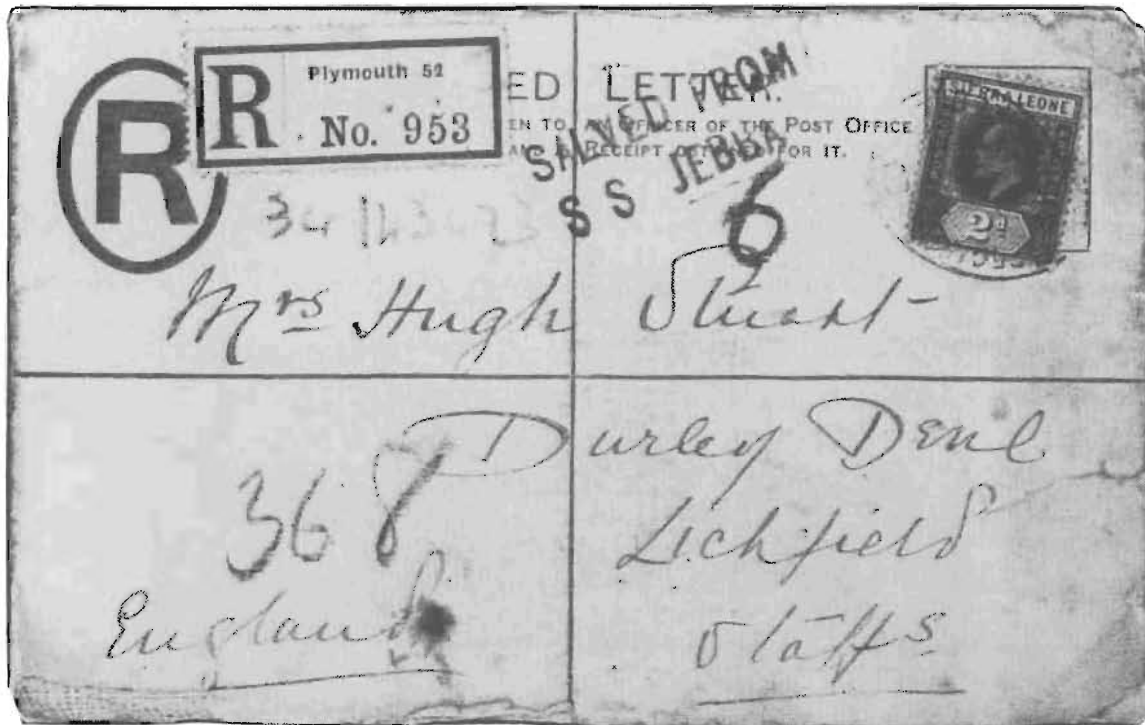 R
R Plymouth 52
No. 953
ED LETTER.
EN TO AN OFFICER OF THE POST OFFICE
AND A RECEIPT FOR IT.
SALVED FROM
S S JEBBA
SIERRA LEONE
2d
6
Mrs Hugh Stuart
Durley Dene
Lichfield
Staffs
368
England